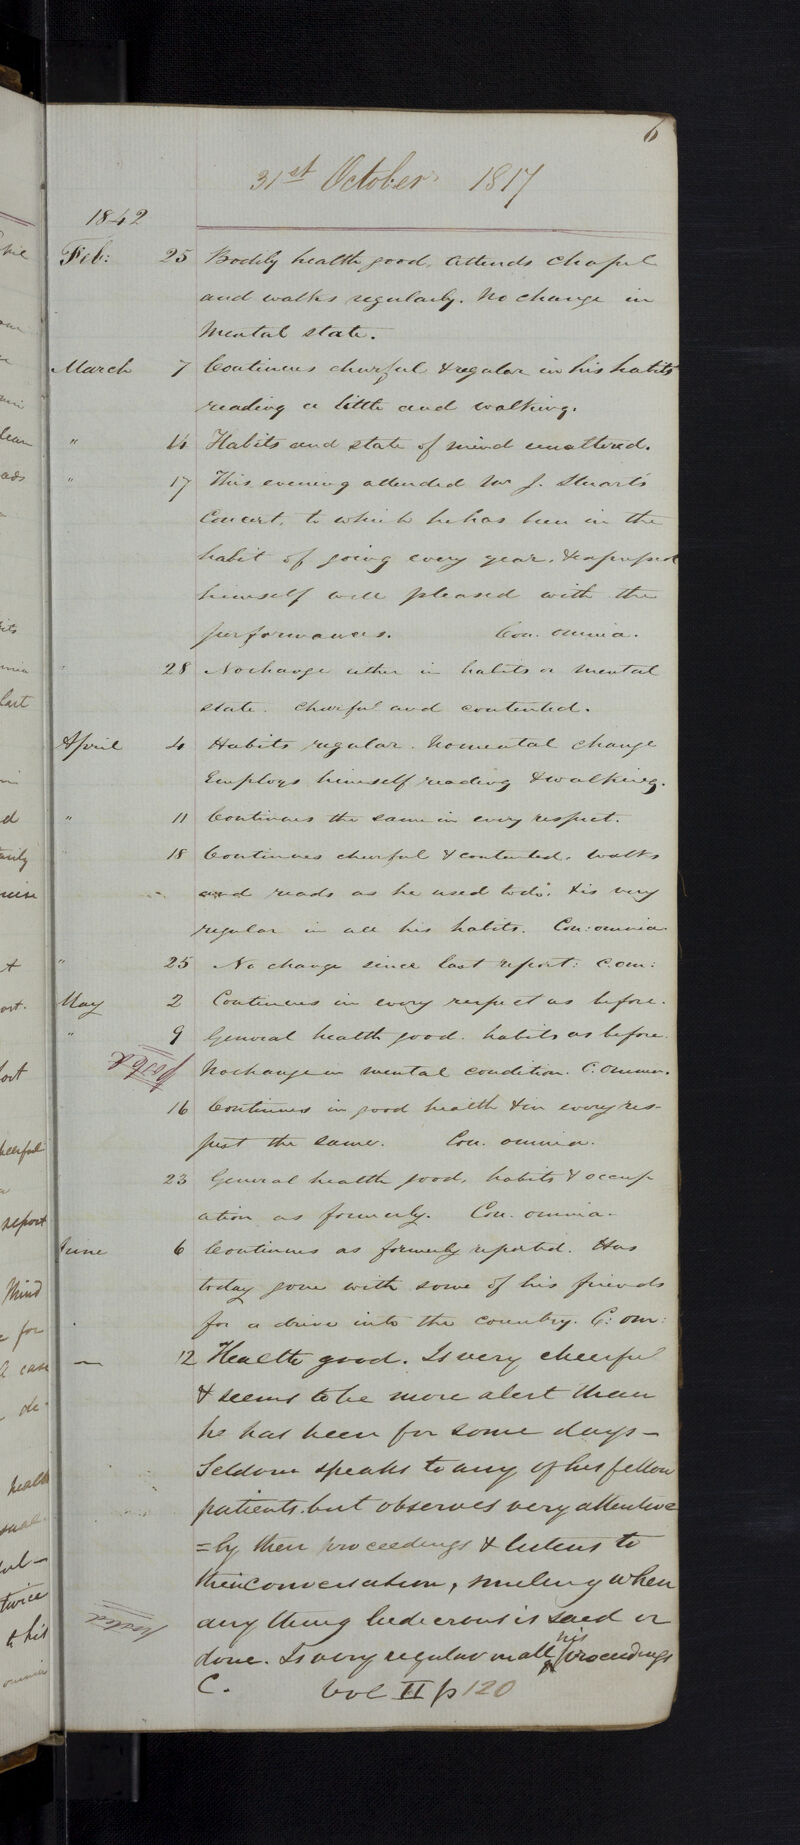 6
31st October 1817
1842
Feb: 25 Bodily health good. Attends Chapel
and walks regularly. No change in
Mental state.
March 7 Continues cheerful & regular in his habits
reading a little and walking.
" 14 Habits and state of mind unaltered.
" 17 This evening attended Mr J. Stuart's
Concert, to which he has been in the
habit of going every year, & expressed
himself well pleased with the
performances. Con. omnia.
28 No change either in habits or mental
state. Cheerful and contented.
April 4 Habits regular. No mental change
Employs himself reading & walking.
" 11 Continues the same in every respect.
18 Continues cheerful & contented. Walks
and reads as he used to do. & is very
regular in all his habits. Con: omnia
" 25 No change since last report: C. om:
May 2 Continues in every respect as before.
" 9 General health good. habits as before.
posted
No change in mental condition. C. omnia.
16 Continues in good health & in every res-
pect the same. Con. omnia.
23 General health good, habits & occup
ation as formerly. Con. omnia.
June 6 Continues as formerly reported. Has
today gone with some of his friends
for a drive into the country. C: om:
— 12 Health good. Is very cheerful
& seems to be more alert than
he has been for some days —
Seldom speaks to any of his fellow
patients. but observes very attentive
=ly their proceedings & listens to
their conversation, smiling when
any thing ludicrous is said or
posted
done. Is very regular in all his proceedings
C. Vol II p 120